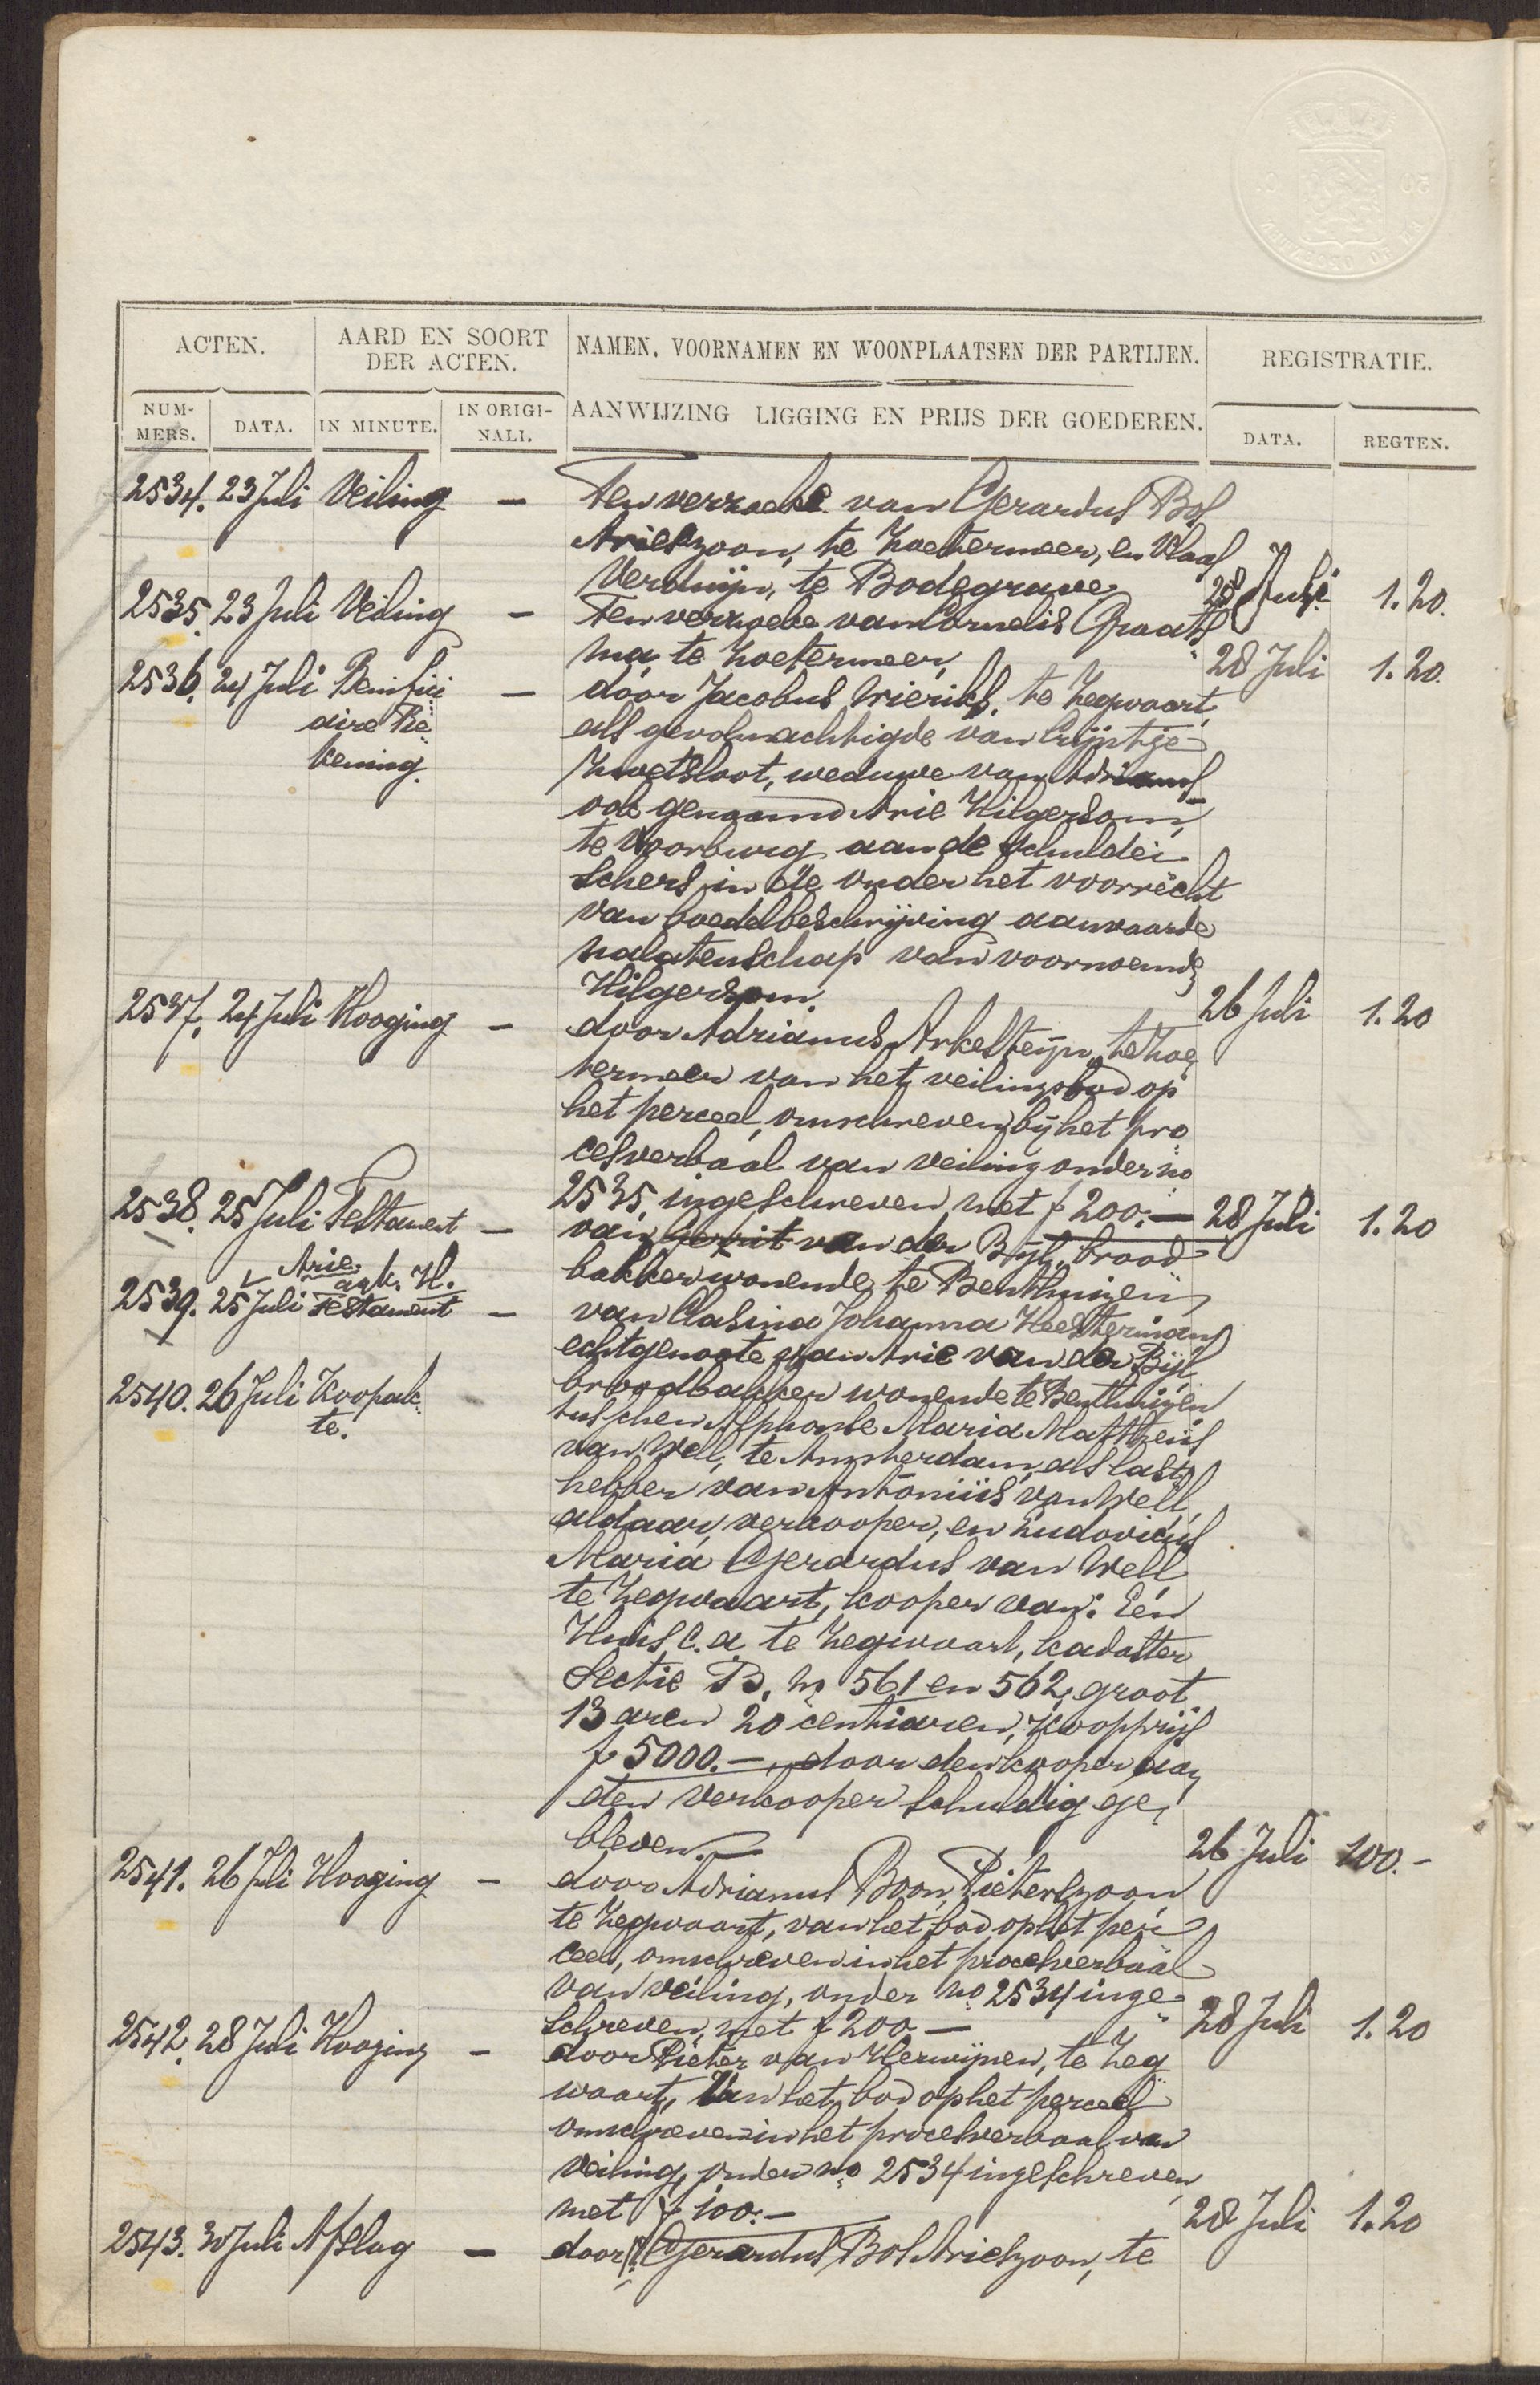 ACTEN.
AARD EN SOORT
DER ACTEN.
NAMEN, VOORNAMEN EN WOONPLAATSEN DER PARTIJEN.
REGISTRATIE.
NUM-
MERS.
DATA.
IN MINUTE.
IN ORIGI-
NALI.
AANWIJZING LIGGING EN PRIJS DER GOEDEREN.
DATA.
REGTEN.
2534. 23 Juli Veiling — Ten verzoeke van Gerardus Bos
Arieszoon, te Zoetermeer, en Klaas
Verduijn, te Bodegrave 28 Juli 1.20.
2535. 23 Juli Veiling — Ten verzoeke van Cornelis Graats
ma te Zoetermeer, 28 Juli 1.20.
2536. 24 Juli Benifici — door Jacobus Wieriks, te Zegwaart,
aire Re als gevolmachtigde van Crijntje
kening. Zwetsloot, weduwe van Adrianus
ook genaamd Arie Hilgersom,
te Voorburg aan de schuldei
schers in de onder het voorrecht
van boedelbeschrijving aanvaarde
nalatenschap van voornoemde
Hilgersom. 26 Juli 1.20
2537. 24 Juli Hooging — door Adrianus Arkesteijn, te Zoe
termeer van het veilingsbod op
het perceel, omschreven bij het pro
cesverbaal van veiling onder no
2535, ingeschreven, met f 200.— 28 Juli 1.20
2538. 25 Juli Testament — van Gerrit van der Bijl, brood
Arie. bakker wonende te Benthuizen
ark. H.
2539. 25 Juli Testament — van Clasina Johanna Heesterman
echtgenoote van Arie van der Bijl
broodbakker wonende te Benthuizen
2540. 26 Juli Koopak
te.
tusschen Alphonse Maria Mattheüs
van Well, te Amsterdam, als last
hebber van Antoniüs van Well,
aldaar, verkooper, en Ludovicus
Maria Gerardus van Well
te Zegwaart, kooper van: Een
Huis c.a. te Zegwaart, kadaster
Sectie B. no 561 en 562, groot
13 aren 20 centiaren, Koopprijs
f 5000.—, door den kooper aan
den verkooper schuldig ge
bleven. 26 Juli 100.—
2541. 26 Juli Hooging — door Adrianus Boon, Pieterszoon
te Zegwaart, van het bod op het per
ceel, omschreven in het procesverbaal
van veiling, onder no 2534 inge
schreven, met f 200.— 28 Juli 1.20
2542. 28 Juli Hooging — door Pieter van Herwijnen, te Zeg
waart, van het bod op het perceel
omschreven in het procesverbaal van
veiling, onder no 2534 ingeschreven
met f 100.— 28 Juli 1.20
2543. 30 Juli Afslag — door Gerardus Bos Arieszoon, te